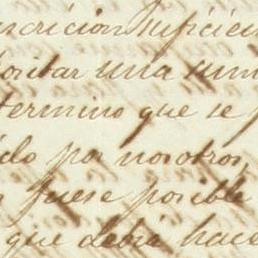 scricion suficien
ositar una sum
termino que se
do por nosotros,
fuese posible
que debia hace